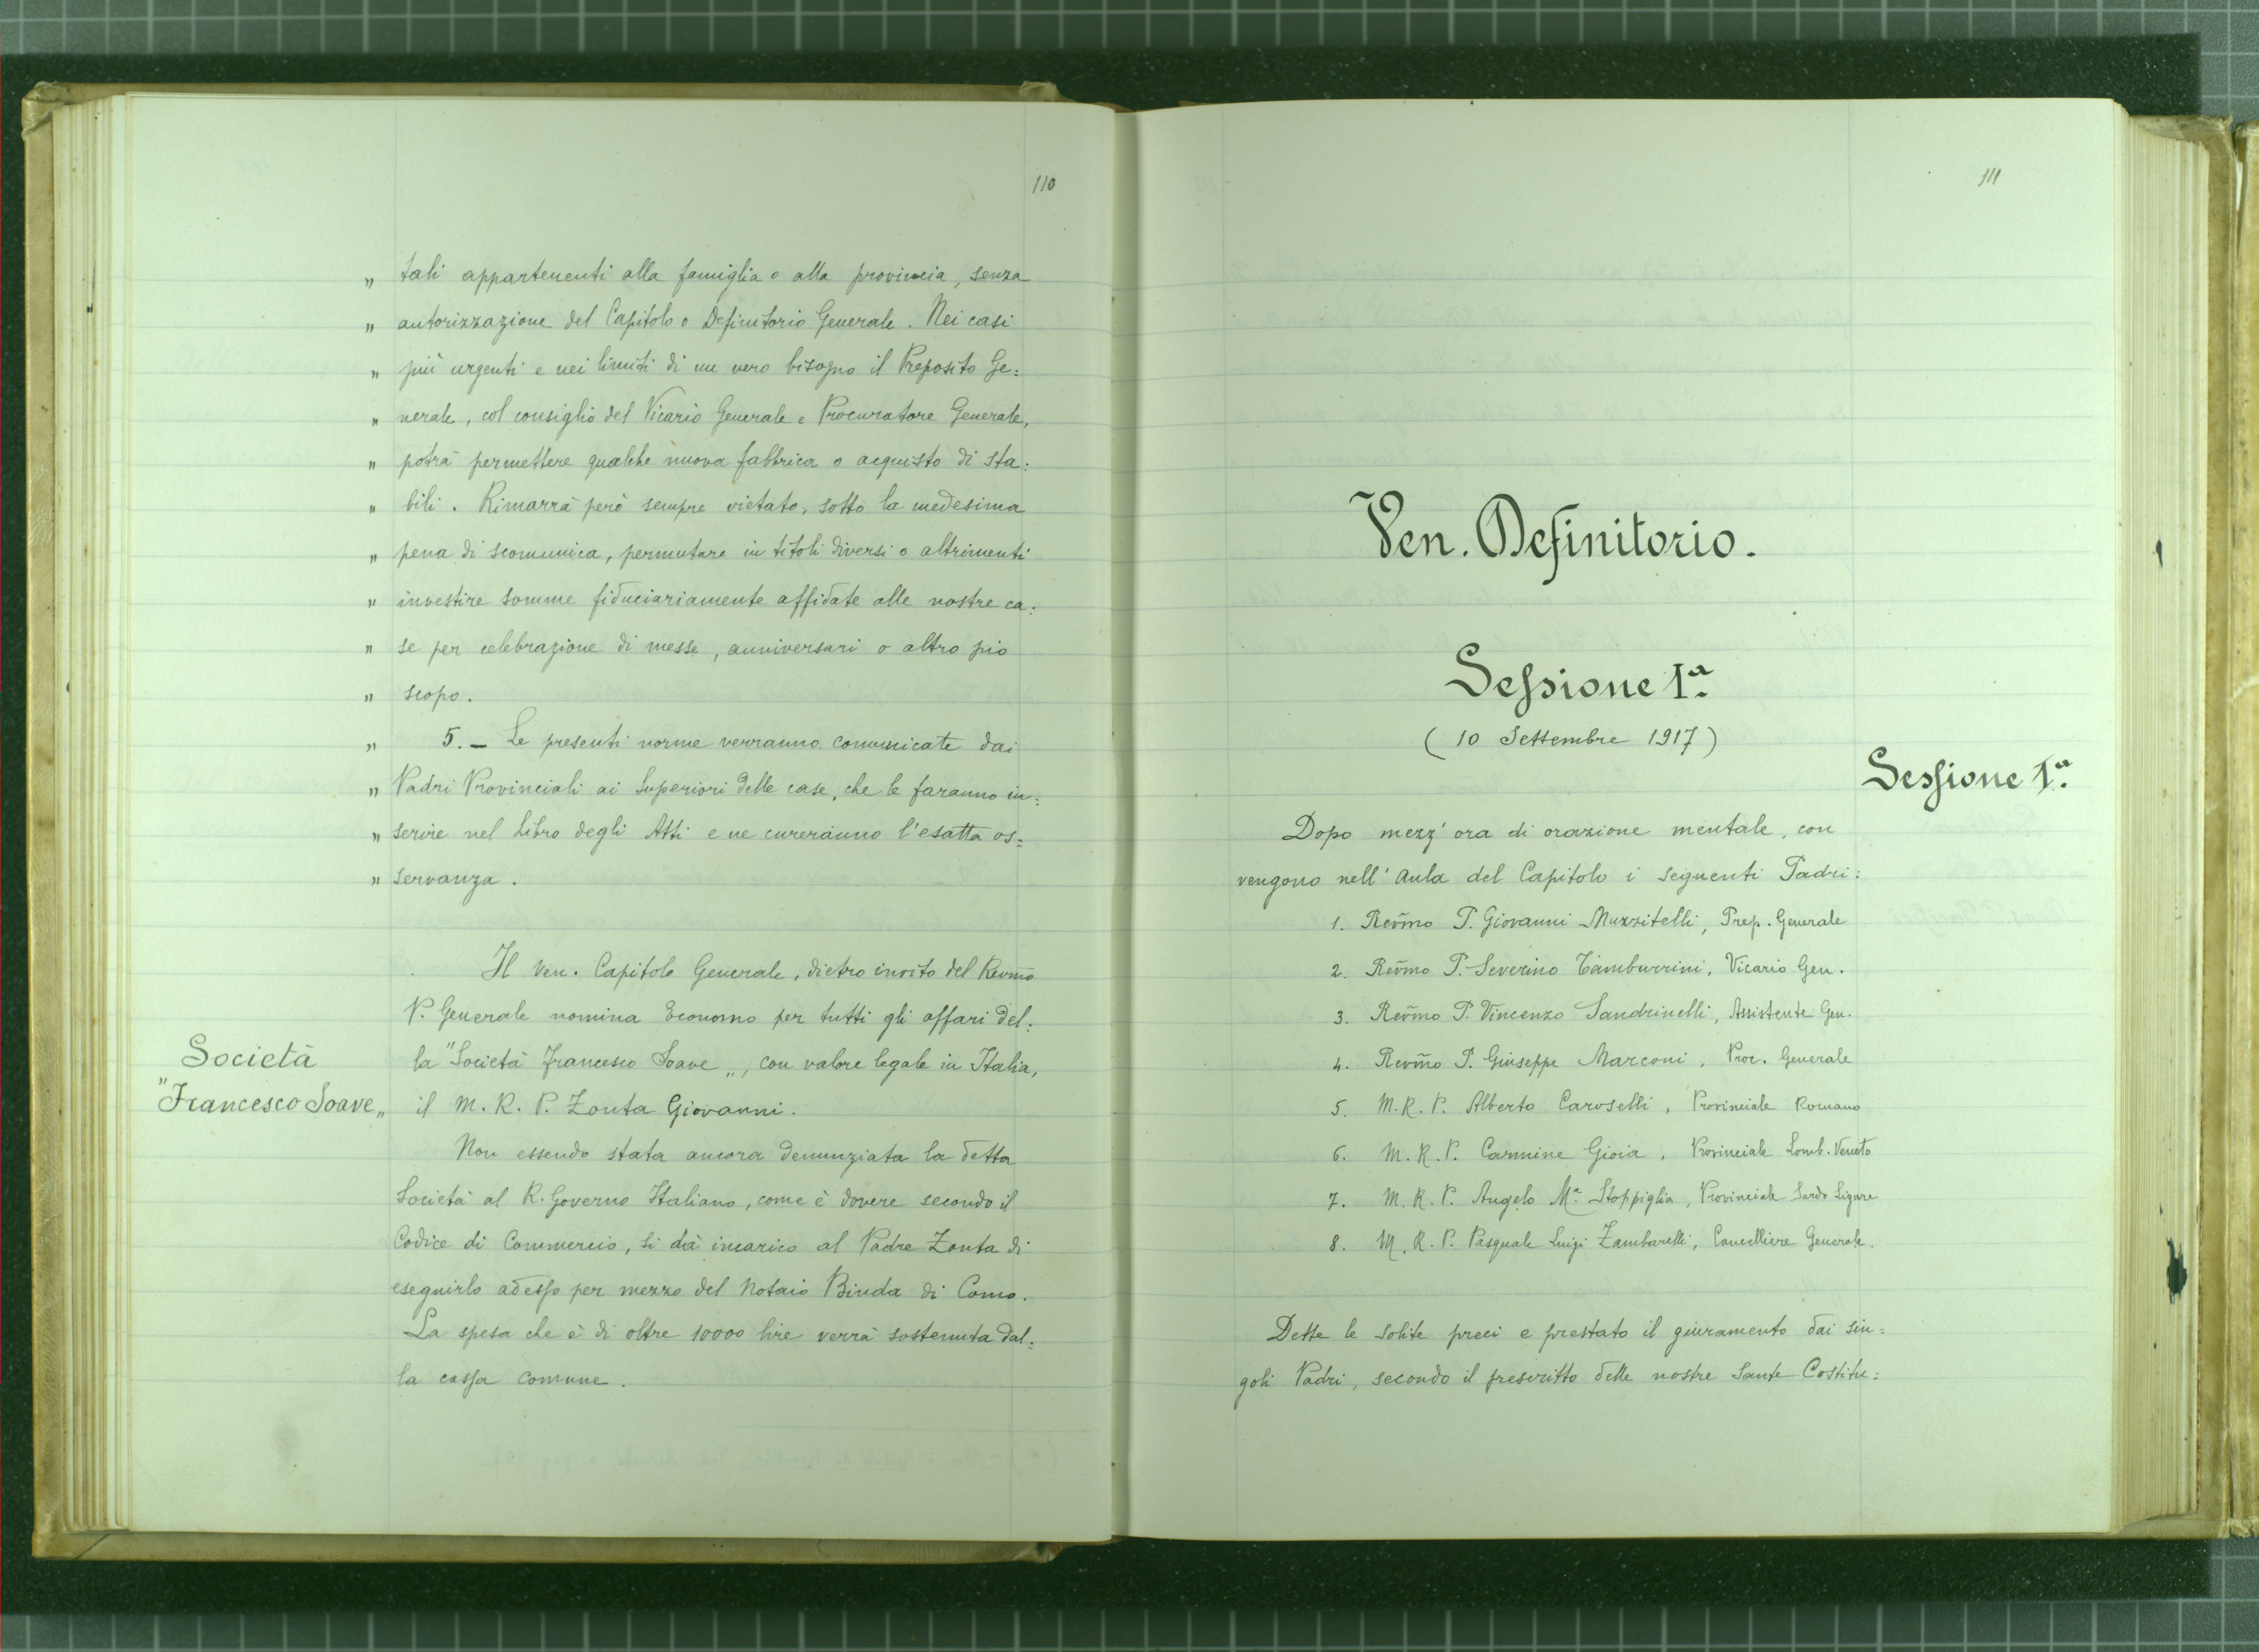 110
„ tali appartenenti alla famiglia o alla provincia, senza
„ autorizzazione del Capitolo o Definitorio Generale. Nei casi
„ più urgenti e nei limiti di un vero bisogno il Preposito Ge=
„ nerale, col consiglio del Vicario Generale e Procuratore Generale,
„ potrà permettere qualche nuova fabbrica o acquisto di sta=
„ bili. Rimarrà però sempre vietato, sotto la medesima
„ pena di scomunica, permutare in titoli diversi o altrimenti
„ investire somme fiduciariamente affidate alle nostre ca=
„ se per celebrazione di messe, anniversari o altro pio
„ scopo.
„ 5. – Le presenti norme verranno comunicate dai
„ Padri Provinciali ai Superiori delle case, che le faranno in=
„ serire nel Libro degli Atti e ne cureranno l'esatta os=
„ servanza.
Il Ven. Capitolo Generale, dietro invito del Revm̃o
P. Generale nomina Economo per tutti gli affari del=
Società
"Francesco Soave„
la "Società Francesco Soave„, con valore legale in Italia,
il M. R. P. Zonta Giovanni.
Non essendo stata ancora denunziata la detta
Società al R. Governo Italiano, come è dovere secondo il
Codice di Commercio, si dà incarico al Padre Zonta di
eseguirlo adesso per mezzo del Notaio Binda di Como.
La spesa che è di oltre 10000 lire verrà sostenuta dal=
la cassa comune.
111
Ven. Definitorio.
Sessione 1ª.
(10 Settembre 1917)
Sessione 1ª.
Dopo mezz'ora di orazione mentale, con
vengono nell'Aula del Capitolo i seguenti Padri:
1. Reṽmo P. Giovanni Muzzitelli, Prep. Generale
2. Reṽmo P. Severino Tamburrini, Vicario Gen.
3. Reṽmo P. Vincenzo Sandrinelli, Assistente Gen.
4. Revm̃o P. Giuseppe Marconi, Proc. Generale
5. M. R. P. Alberto Caroselli, Provinciale Romano
6. M. R. P. Carmine Gioia, Provinciale Lomb. Veneto
7. M. R. P. Angelo Mª Stoppiglia, Provinciale Sardo Ligure
8. M. R. P. Pasquale Luigi Zambarelli, Cancelliere Generale.
Dette le solite preci e prestato il giuramento dai sin=
goli Padri, secondo il prescritto delle nostre Sante Costitu=